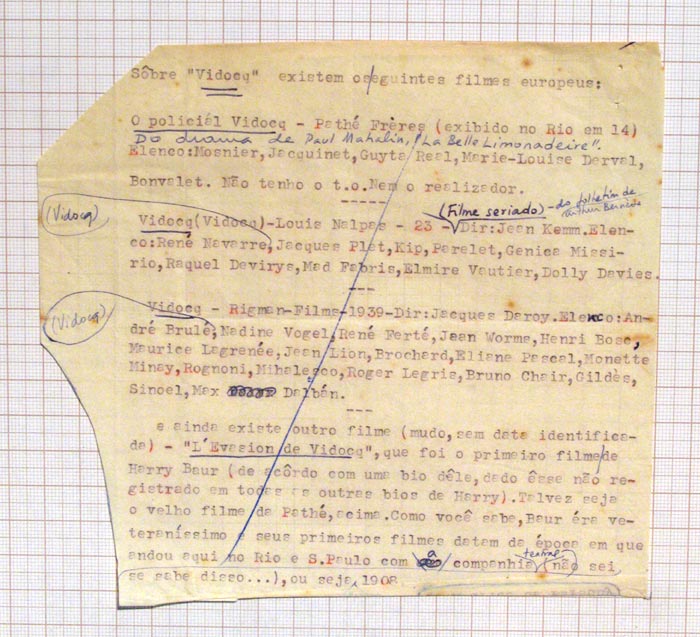 Sôbre "Vidocq" existem os/eguintes filmes europeus:
O policiál Vidocq - Pathé Frères (exibido no Rio em 14)
Do drama de Paul Mahalin, "La Belle Limonadeire".
Elenco:Mosnier,Jacquinet,Guyta Real,Marie-Louise Derval,
Bonvalet. Não tenho o t.o.Nem o realizador.
-----
(Filme seriado) - do folhetim de
Arthur Bernède
(Vidocq)
Vidocq(Vidocq)-Louis Nalpas - 23 - Dir:Jean Kemm.Elen-
co:René Navarre,Jacques Plet,Kip,Parelet,Genica Missi-
rio,Raquel Devirys,Mad Fabris,Elmire Vautier,Dolly Davies.
---
(Vidocq)
Vidocq - Rigman-Films-1939-Dir:Jacques Daroy.Elenco:An-
dré Brulé,Nadine Vogel,René Ferté,Jean Worms,Henri Bosc,
Maurice Lagrenée,Jean Lion,Brochard,Eliane Pascal,Monette
Minay,Rognoni,Mihalesco,Roger Legris,Bruno Chair,Gildès,
Sinoel,Max Dalbán.
---
e ainda existe outro filme (mudo,sem data identifica-
da) - "L'Evasion de Vidocq",que foi o primeiro filme/de
Harry Baur (de acôrdo com uma bio dêle,dado êsse não re-
gistrado em todas as outras bios de Harry).Talvez seja
o velho filme da Pathé,acima.Como você sabe,Baur éra ve-
teraníssimo e seus primeiros filmes datam da época em que
andou aqui no Rio e S.Paulo com a companhia teatral (não sei
se sabe disso...),ou seja, 1908.